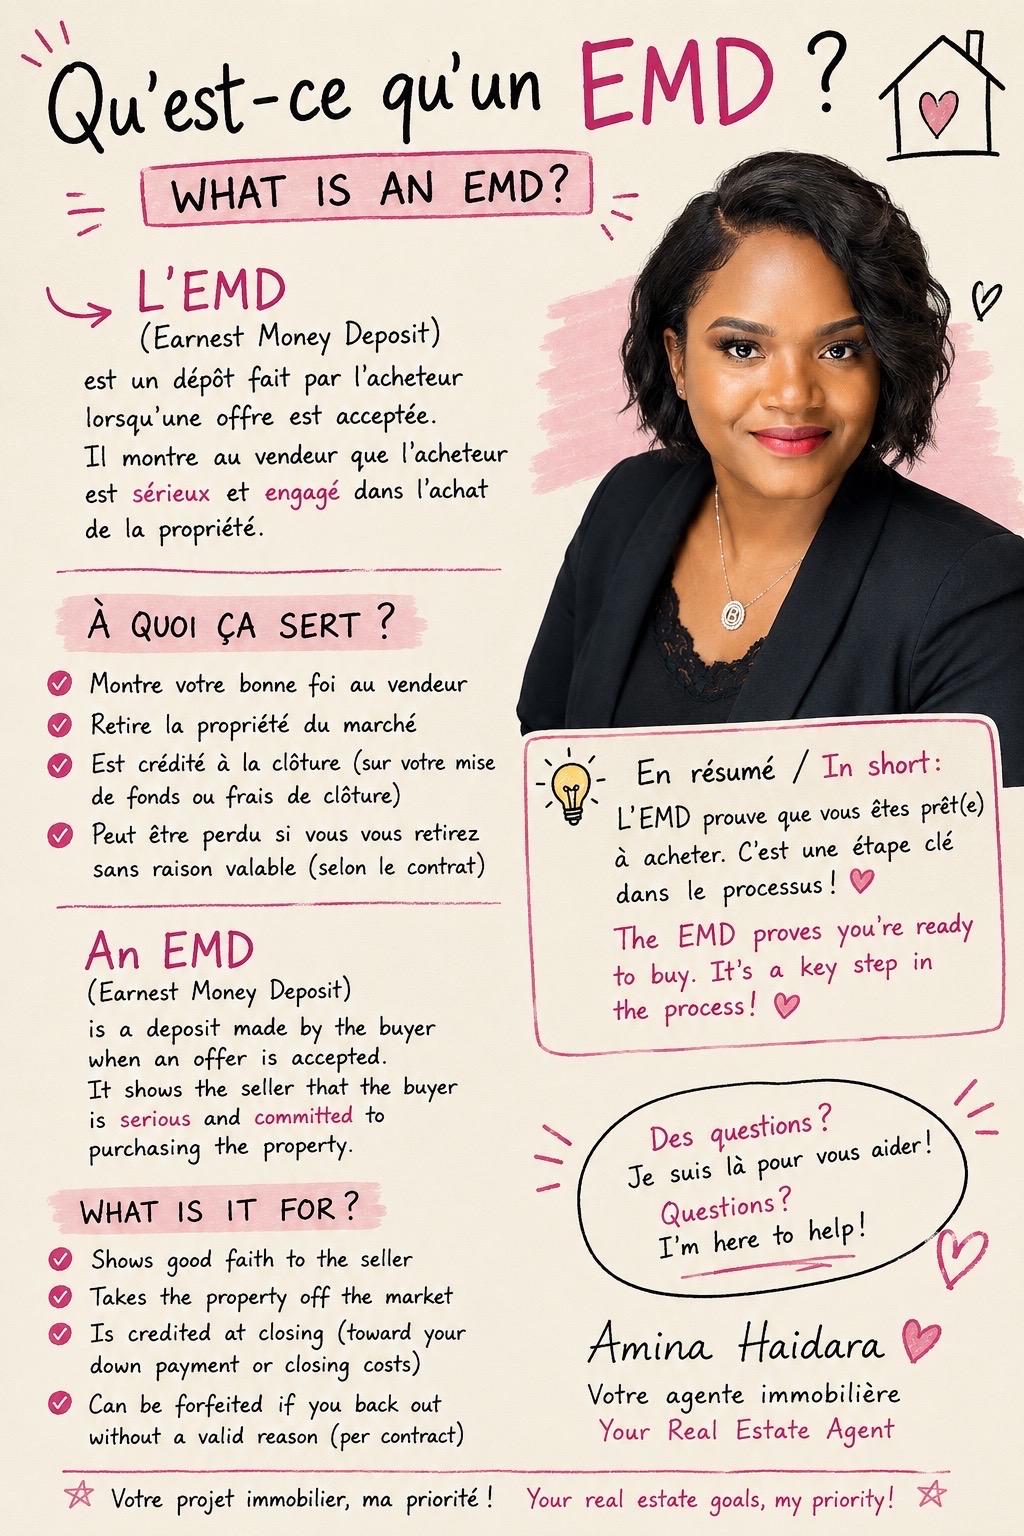 Qu'est-ce qu'un EMD ?
WHAT IS AN EMD?
L'EMD
(Earnest Money Deposit)
est un dépôt fait par l'acheteur
lorsqu'une offre est acceptée.
Il montre au vendeur que l'acheteur
est sérieux et engagé dans l'achat
de la propriété.
À QUOI ÇA SERT ?
Montre votre bonne foi au vendeur
Retire la propriété du marché
Est crédité à la clôture (sur votre mise
de fonds ou frais de clôture)
Peut être perdu si vous vous retirez
sans raison valable (selon le contrat)
An EMD
(Earnest Money Deposit)
is a deposit made by the buyer
when an offer is accepted.
It shows the seller that the buyer
is serious and committed to
purchasing the property.
WHAT IS IT FOR?
Shows good faith to the seller
Takes the property off the market
Is credited at closing (toward your
down payment or closing costs)
Can be forfeited if you back out
without a valid reason (per contract)
B
En résumé / In short:
L'EMD prouve que vous êtes prêt(e)
à acheter. C'est une étape clé
dans le processus!
The EMD proves you're ready
to buy. It's a key step in
the process!
Des questions?
Je suis là pour vous aider!
Questions?
I'm here to help!
Amina Haidara
Votre agente immobilière
Your Real Estate Agent
Votre projet immobilier, ma priorité! Your real estate goals, my priority!